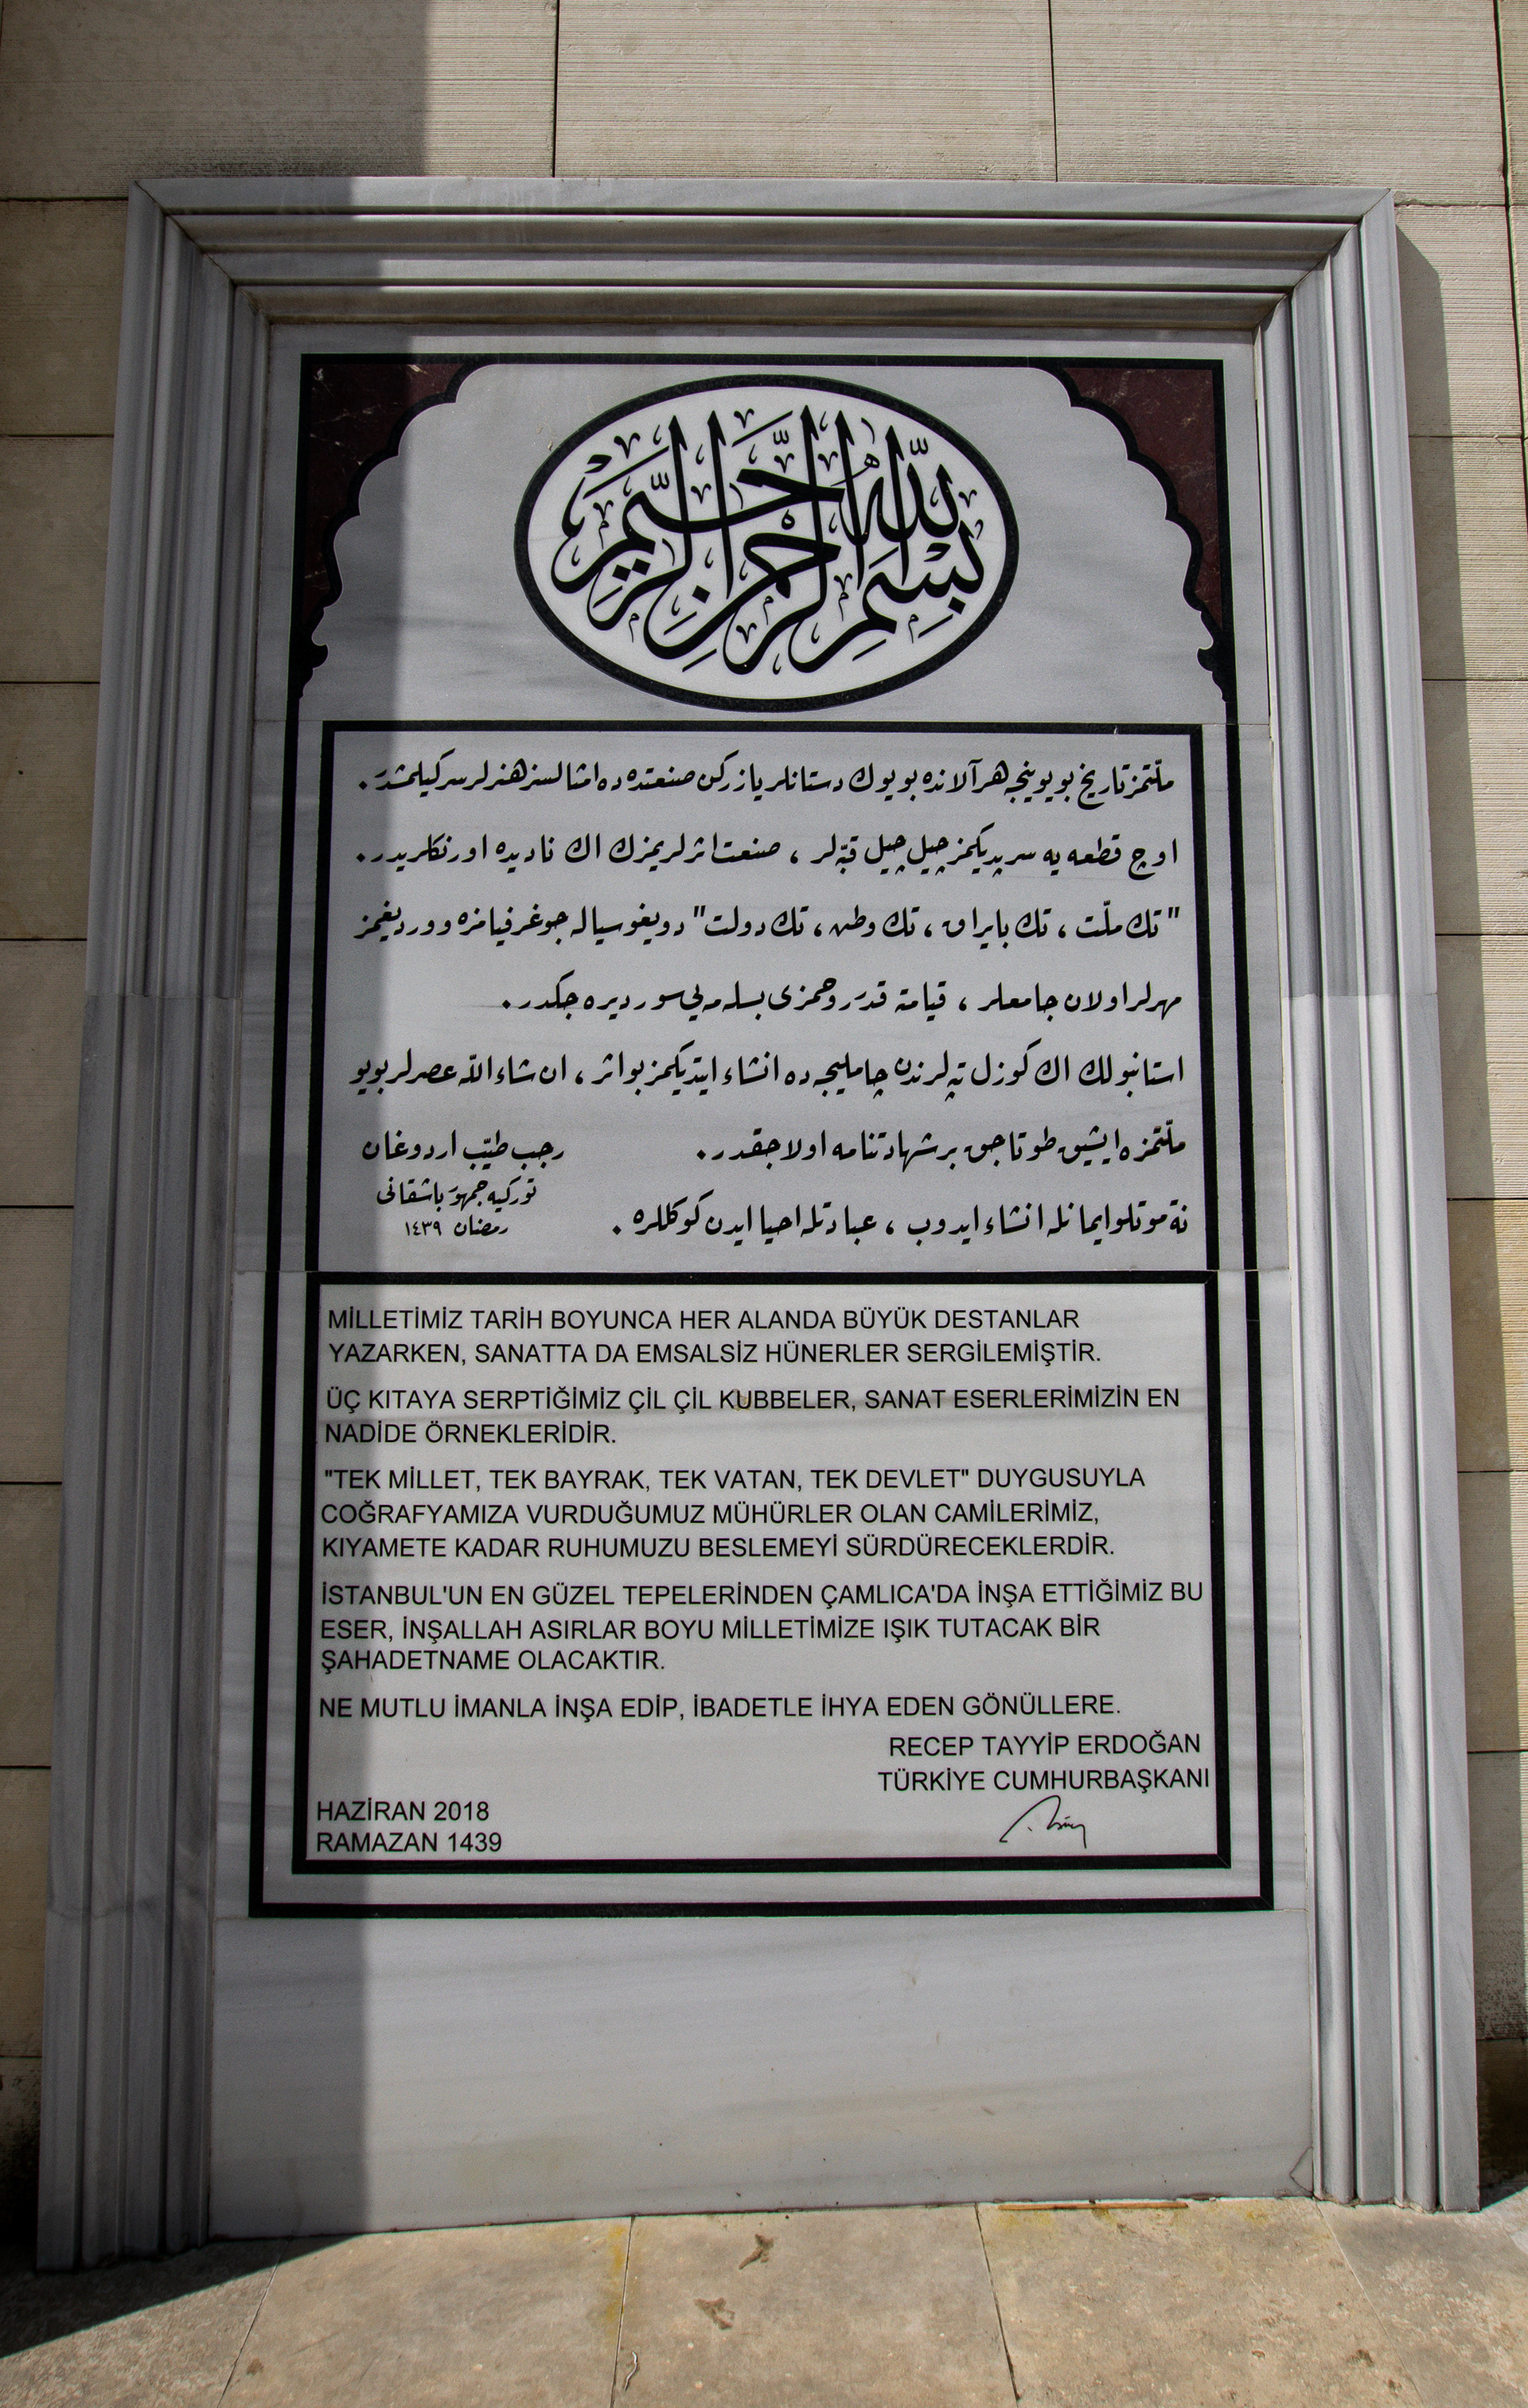 بِسْمِ اللّٰهِ الرَّحْمٰنِ الرَّحِيمِ
ملّتمز تاريخ بويونجه هر آلانده بويوك دستانلر يازركن صنعتده ده امثالسز هنرلر سركيلمشدر.
اوچ قطعه يه سرپديكمز چيل چيل قبّه لر ، صنعت اثرلريمزك اك ناديده اورنكلريدر.
"تك ملّت ، تك بايراق ، تك وطن ، تك دولت" دويغوسياله جوغرافيامزه ووردیغمز
مهرلر اولان جامعلر ، قيامته قدر روحمزى بسله مه يى سورديره جكدر.
استانبولك اك كوزل تپه لرندن چامليجه ده انشاء ايتديكمز بو اثر ، ان شاء الله عصرلر بويو
ملّتمزه ايشيق طوتاجق بر شهادتنامه اولاجقدر.
رجب طيّب اردوغان
توركيه جمهور باشقانى
رمضان ١٤٣٩
نه موتلو ايمانله انشاء ايدوب ، عبادتله احيا ايدن كوكللره.
MİLLETİMİZ TARİH BOYUNCA HER ALANDA BÜYÜK DESTANLAR
YAZARKEN, SANATTA DA EMSALSİZ HÜNERLER SERGİLEMİŞTİR.
ÜÇ KITAYA SERPTİĞİMİZ ÇİL ÇİL KUBBELER, SANAT ESERLERİMİZİN EN
NADİDE ÖRNEKLERİDİR.
"TEK MİLLET, TEK BAYRAK, TEK VATAN, TEK DEVLET" DUYGUSUYLA
COĞRAFYAMIZA VURDUĞUMUZ MÜHÜRLER OLAN CAMİLERİMİZ,
KIYAMETE KADAR RUHUMUZU BESLEMEYİ SÜRDÜRECEKLERDİR.
İSTANBUL'UN EN GÜZEL TEPELERİNDEN ÇAMLICA'DA İNŞA ETTİĞİMİZ BU
ESER, İNŞALLAH ASIRLAR BOYU MİLLETİMİZE IŞIK TUTACAK BİR
ŞAHADETNAME OLACAKTIR.
NE MUTLU İMANLA İNŞA EDİP, İBADETLE İHYA EDEN GÖNÜLLERE.
RECEP TAYYİP ERDOĞAN
TÜRKİYE CUMHURBAŞKANI
HAZİRAN 2018
RAMAZAN 1439